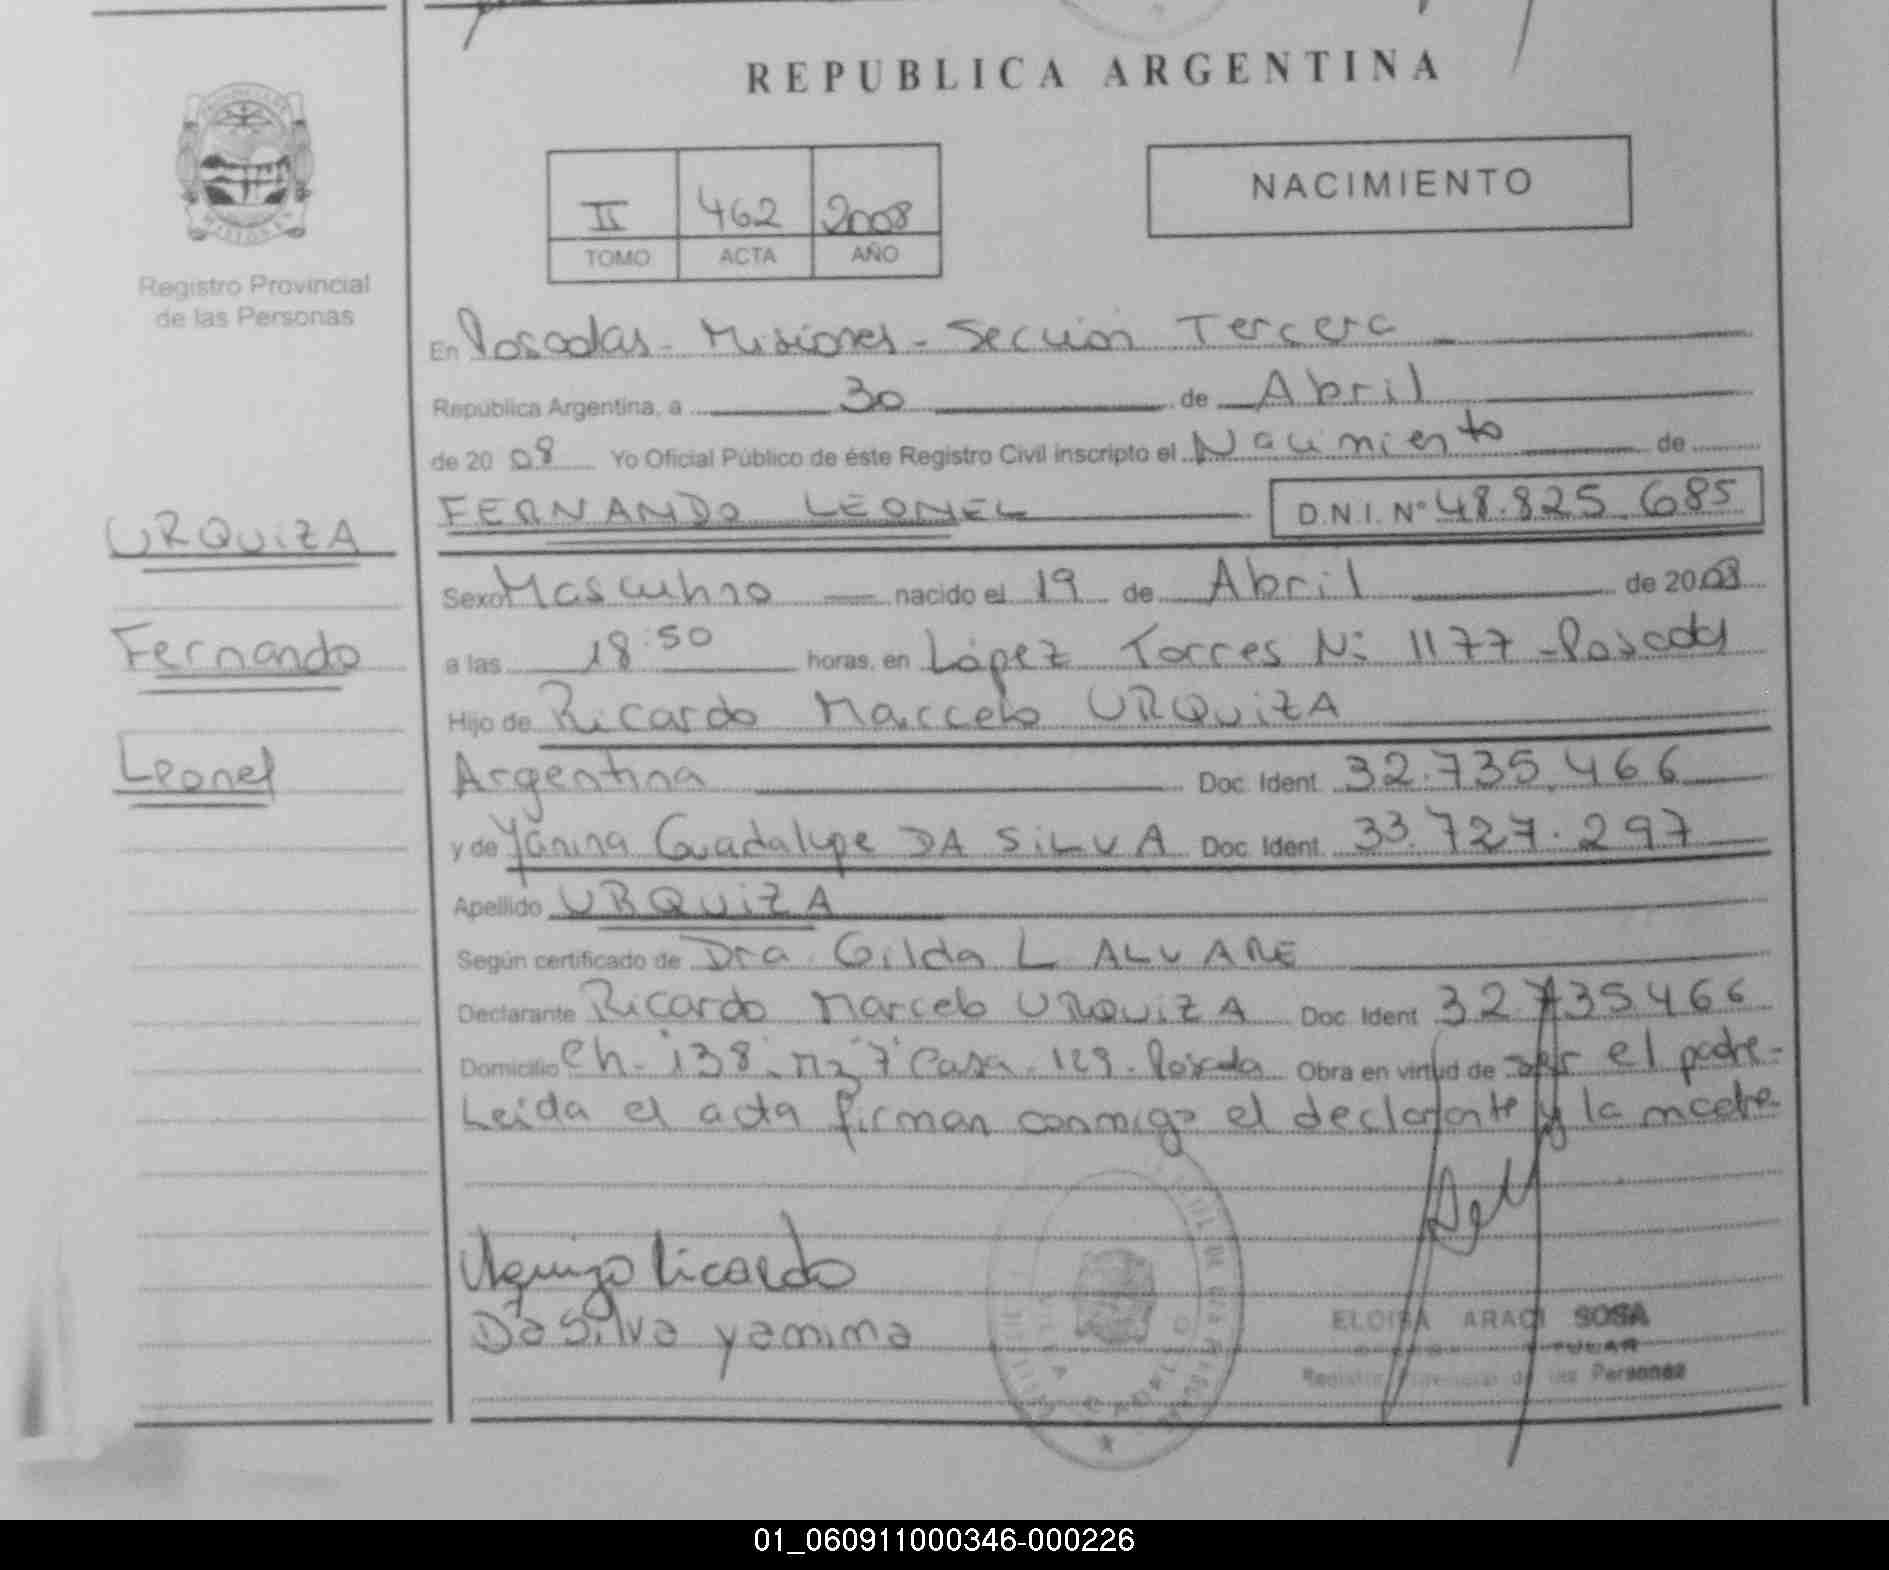 REPUBLICA ARGENTINA
II 462 2008
TOMO ACTA AÑO
NACIMIENTO
Registro Provincial
de las Personas
En Posadas - Misiones - Sección Tercera
República Argentina, a 30 de Abril
de 20 08 Yo Oficial Público de éste Registro Civil inscripto el Nacimiento de
FERNANDO LEONEL D.N.I. Nº 48.825.685
URQUIZA
Fernando
Leonel
Sexo Masculino nacido el 19 de Abril de 2008
a las 18:50 horas, en López Torres Nº 1177 - Posadas
Hijo de Ricardo Marcelo URQUIZA
Argentina Doc. Ident. 32.735.466
y de Yanina Guadalupe DA SILVA Doc. Ident. 33.727.297
Apellido URQUIZA
Según certificado de Dra. Gilda L. ALVARE
Declarante Ricardo Marcelo URQUIZA Doc. Ident 32.735.466
Domicilio Ch. 138. Mz 7 Casa 129. Posada Obra en virtud de ser el padre-
Leida el acta firman conmigo el declarante y la madre
Urquiza Ricardo
Da Silva yanina
ELOISA ARACI SOSA
Registro Provincial de las Personas
01_060911000346-000226